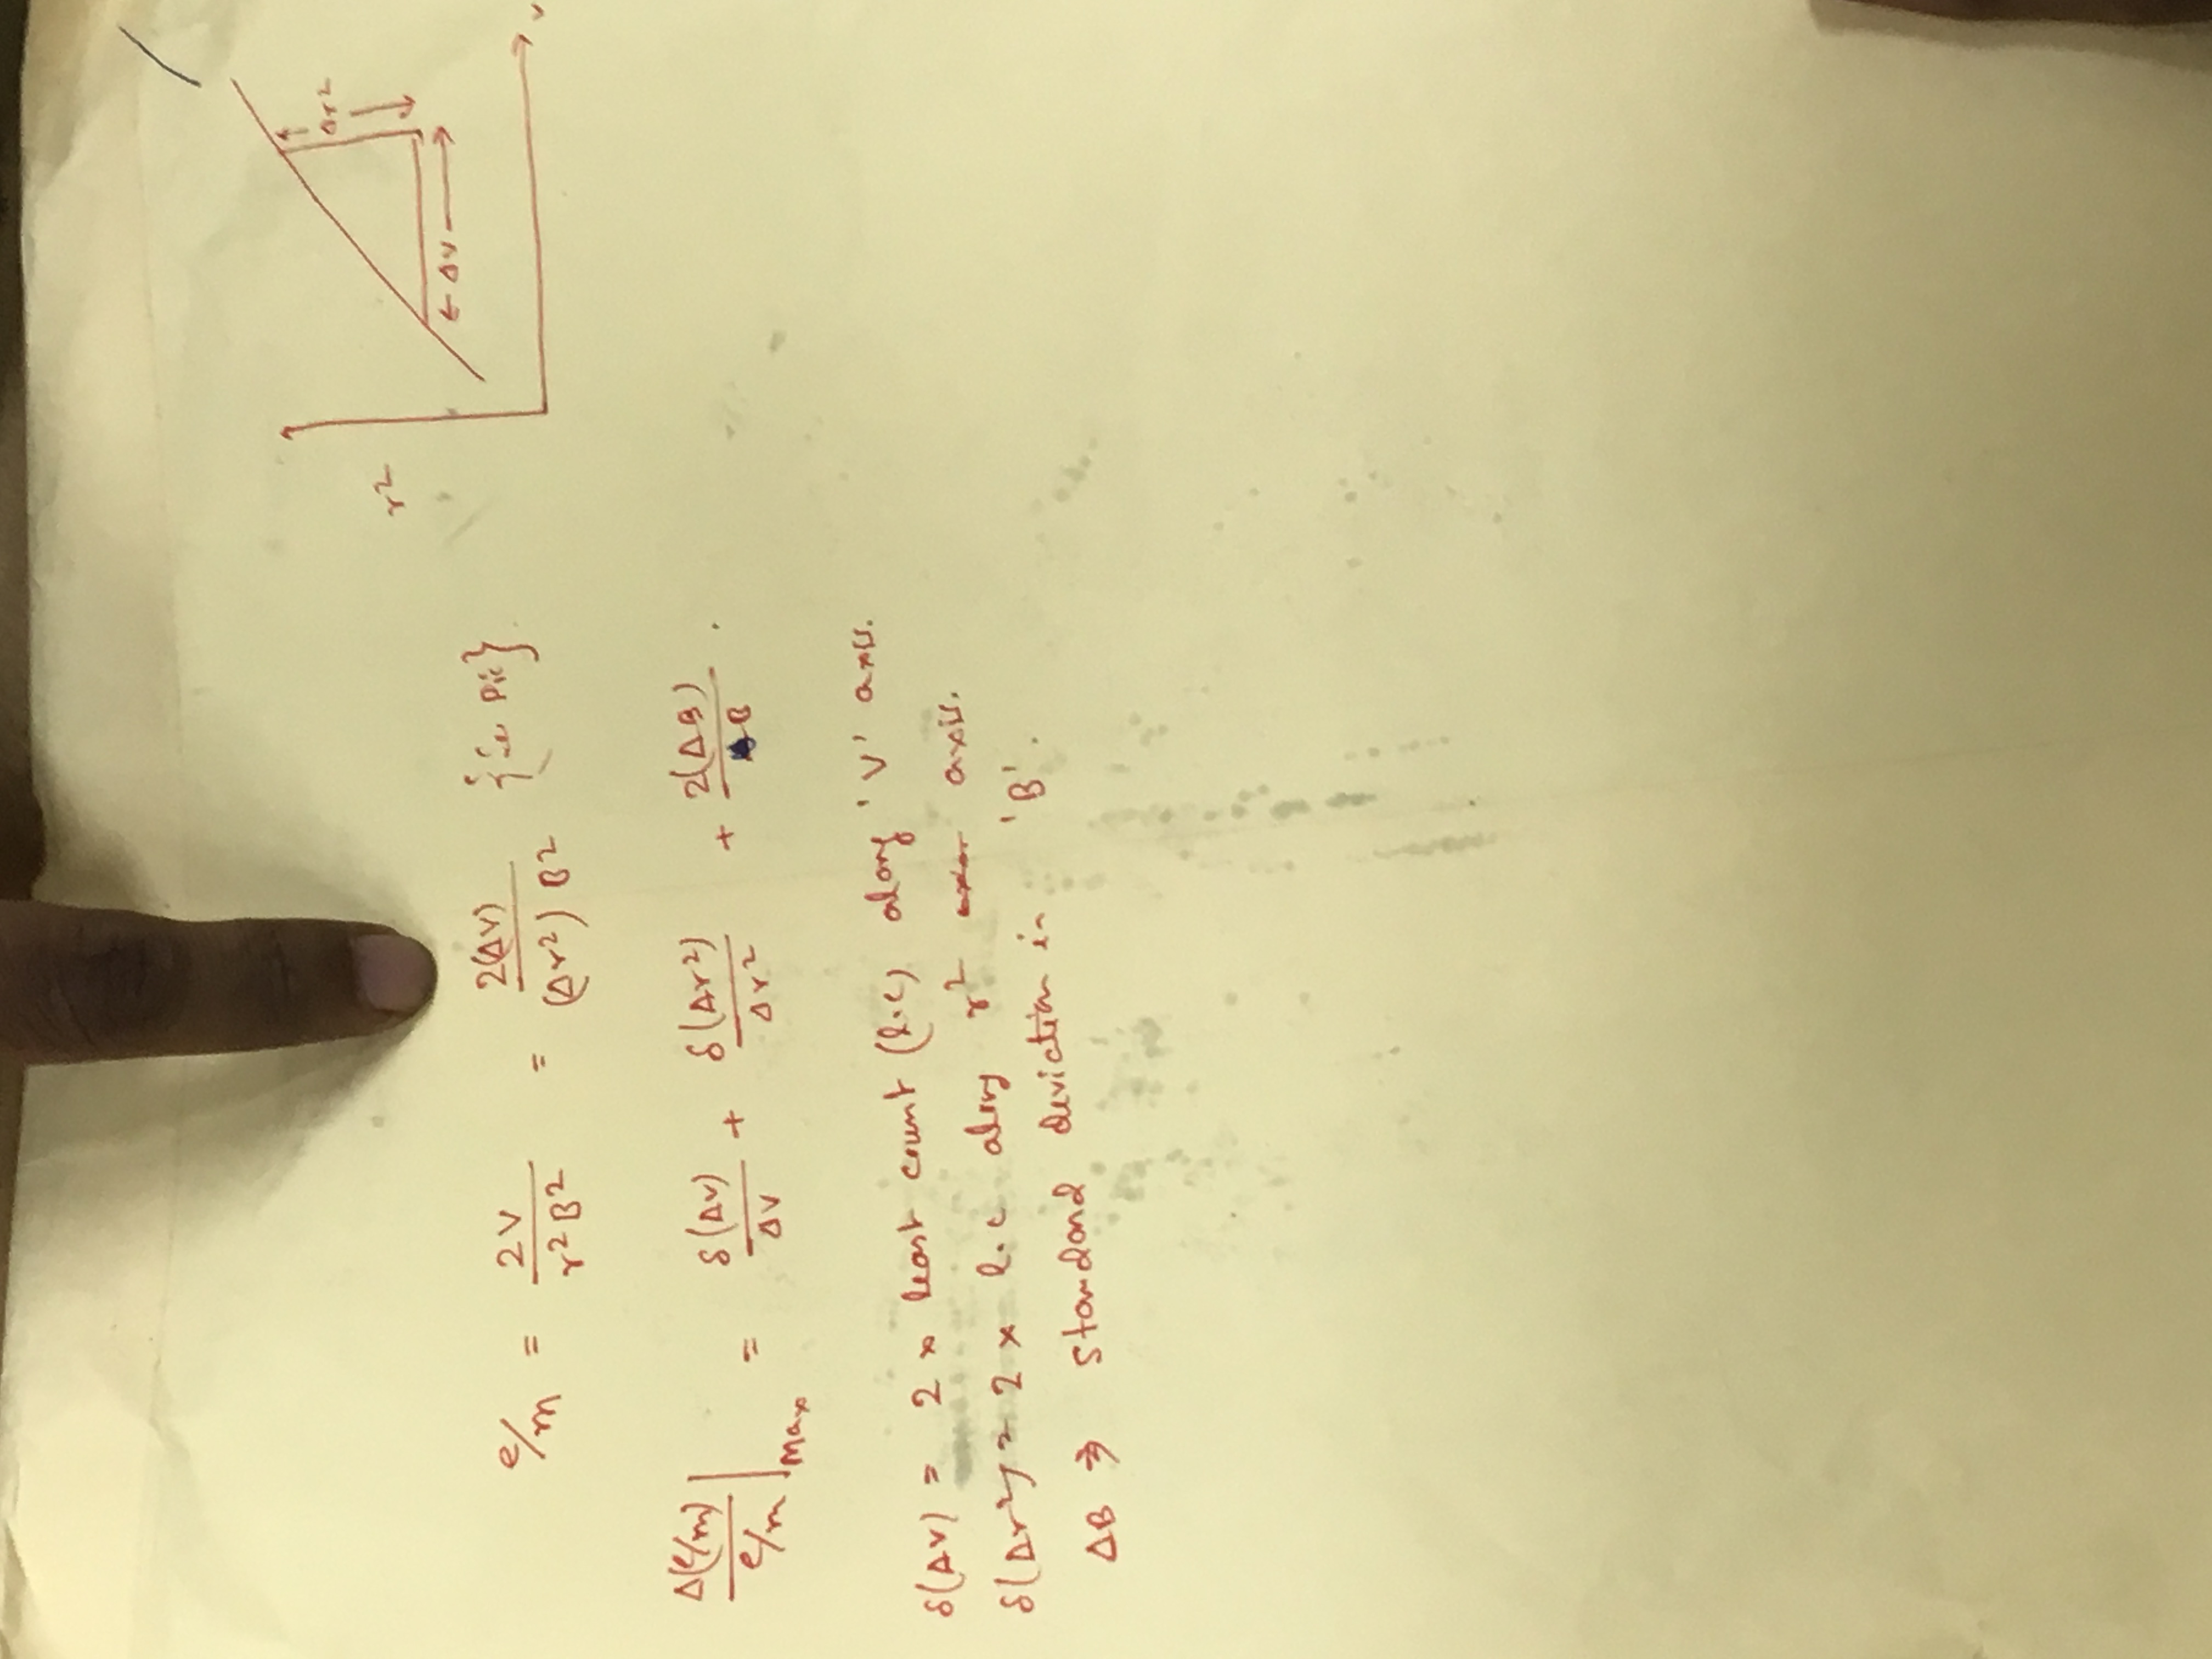 r²
Δr²
← ΔV →
v
e/m = 2V / r² B² = 2(ΔV) / (Δr²) B² { Pic}
Δ(e/m) / e/m |max = δ(Δv) / ΔV + δ(Δr²) / Δr² + 2(ΔB) / B .
δ(Δv) = 2 × least count (l.c) along 'V' axis.
δ(Δr²) = 2 × l.c along r² axis.
ΔB ⇒ standard deviation in 'B'.